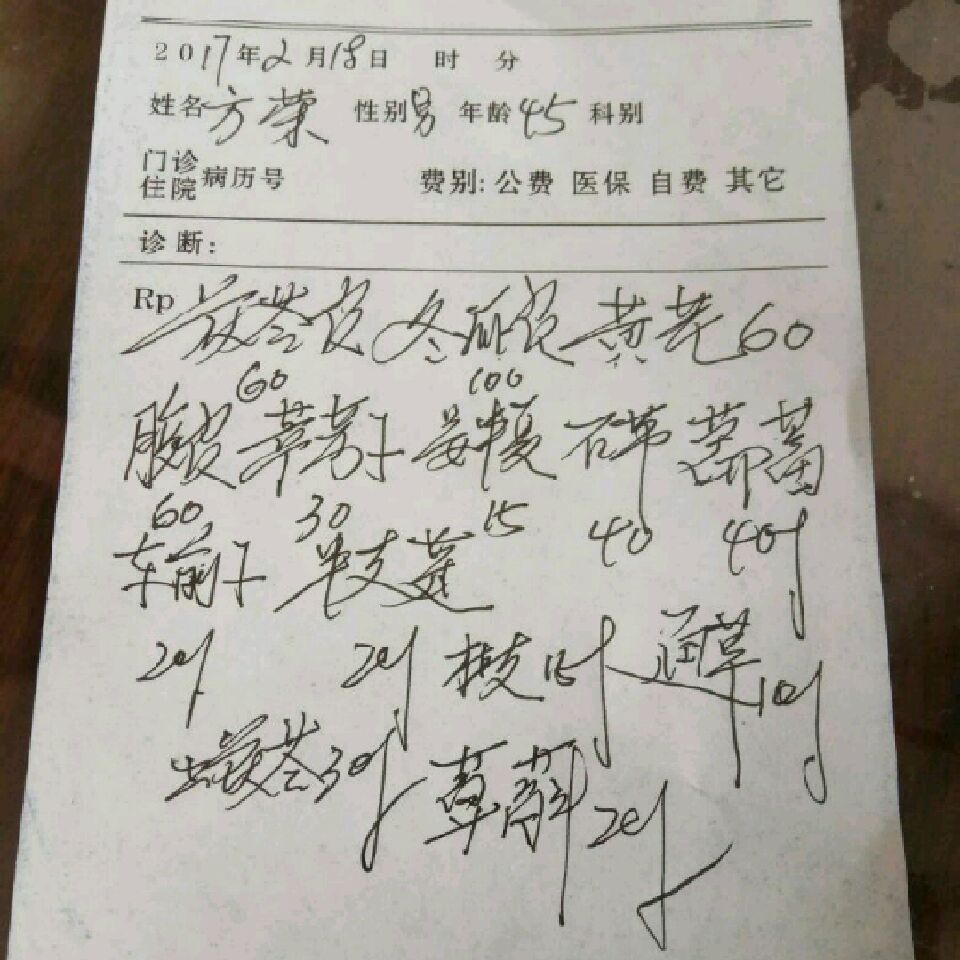 2017年2月18日 时 分
姓名 方荣 性别 男 年龄 45 科别
门诊
住院 病历号 费别: 公费 医保 自费 其它
诊断:
Rp 茯苓皮 冬瓜皮 黄芪60
60 100
腹皮 葶苈子 姜半夏 石苇
60 30 15 40 40
车前子 半支莲
20 20 桂枝15 通草10
土茯苓30 萆薢20